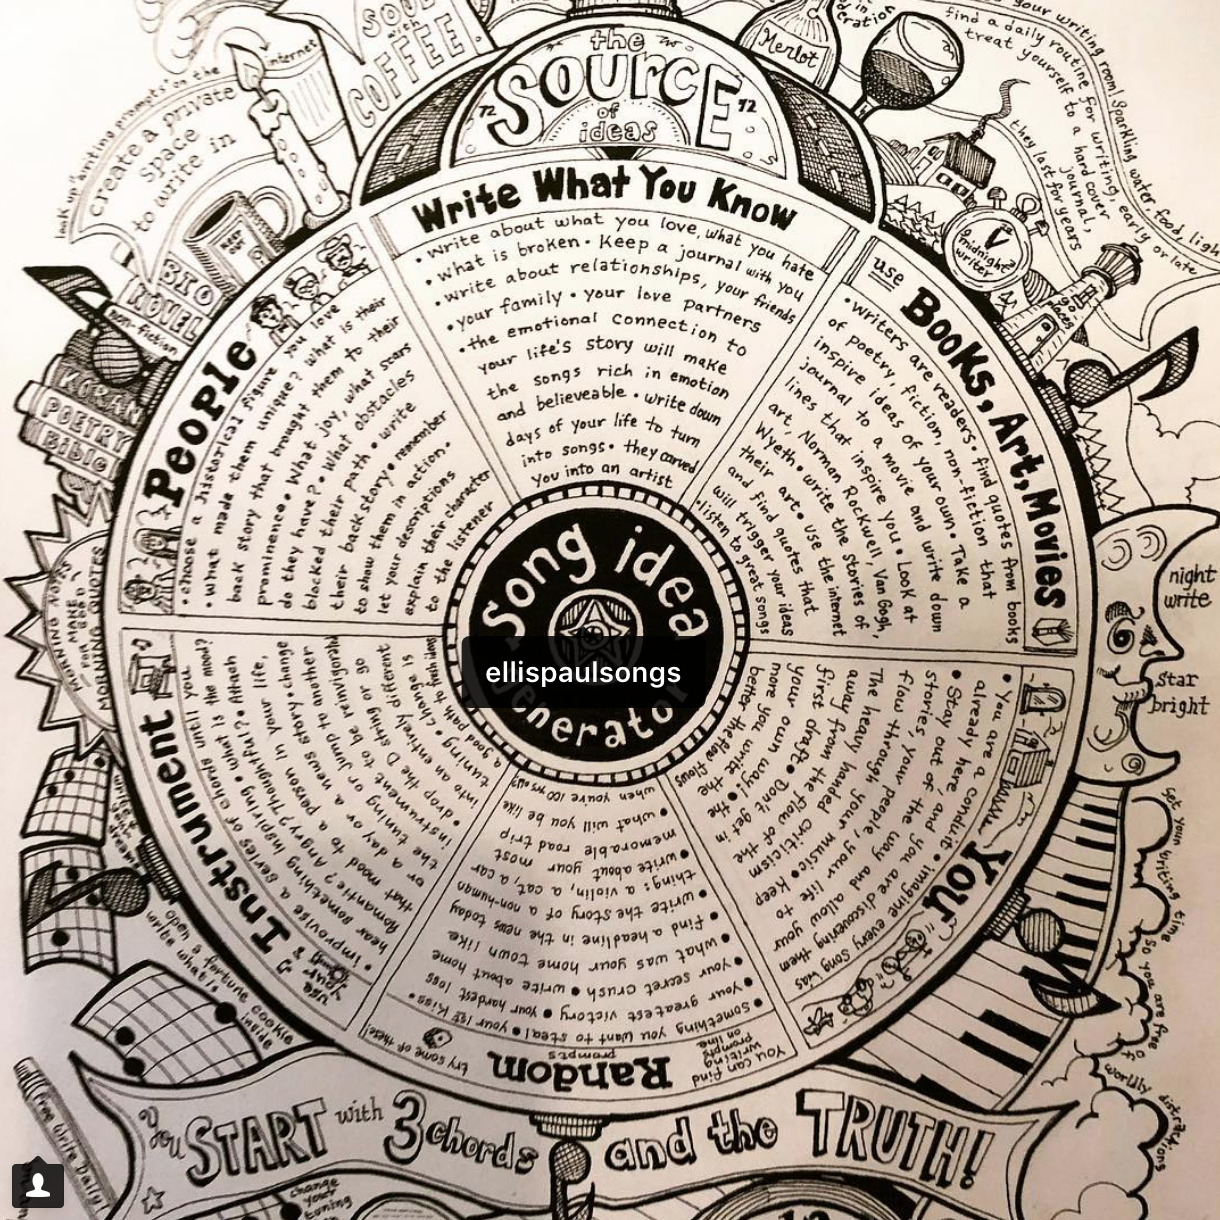 the
SOURCE
of
ideas
SOUL
with
COFFEE
internet
look up "writing prompts" on the
create a private
space
to write in
Merlot
find a daily routine for writing, early or late
treat yourself to a
hard cover
journal,
they last for years
your writing room! Sparkling water food, light
midnight
writer
go
places
BIG
NOVEL
non-fiction
KORAN
POETRY
Bible
MORNING QUOTES
night
write
star
bright
Write What You Know
• write about what you love, what you hate
• what is broken • Keep a journal with you
• write about relationships, your friends
• your family • your love partners
• the emotional connection to
your life's story will make
the songs rich in emotion
and believeable • write down
days of your life to turn
into songs • they carved
you into an artist
use
BOOKS, Art, Movies
• writers are readers • find quotes from books
of poetry, fiction, non-fiction that
inspire ideas of your own • Take a
journal to a movie and write down
lines that inspire you • Look at
art, Norman Rockwell, Van Gogh,
Wyeth • write the stories of
their art • use the internet
and find quotes that
will trigger your ideas
• listen to great songs
You
• You are a conduit • imagine every song was
already here, and you are discovering them
• Stay out of the way and allow your
stories, your people, your life to
flow through your music • Keep
The heavy handed criticism
away from the flow of the
first draft • Don't get in
your own way! • the
more you write the
better the flow flows
Random
prompts
try some of these!
you can find
writing
prompts
on line
• something you want to steal • your 1st Kiss
• your greatest victory • your hardest loss
• your secret crush • write about home
• what was your home town like
• find a headline in the news today
• write the story of a non-human
things: a violin, a cat, a car
• write about your most
memorable road trip
• what will you be like
when you're 100 yrs old?
use
your
Instrument
• improvise a series of chords until you
hear something inspiring • what is the mood?
Romantic? Angry? Thoughtful? • Attach
that mood to a person in your life,
or a day or a news story • change
the tuning or jump to another
instrument to be new/enjoyable
• drop the D string or go
into an entirely different
tuning • change is
a good path to
People
• choose a historical figure you love
• what made them unique? What is their
back story that brought them to their
prominence • What joy, what scars
do they have? • What obstacles
blocked their path • write
their back story • remember
to show them in action.
let your descriptions
explain their character
to the listener
Song idea
generator
ellispaulsongs
open a fortune cookie
write what's
inside
Get your writing time so you are free of
worldly
distractions
free write Daily!
You START with 3 chords and the TRUTH!
change
your
tuning
12